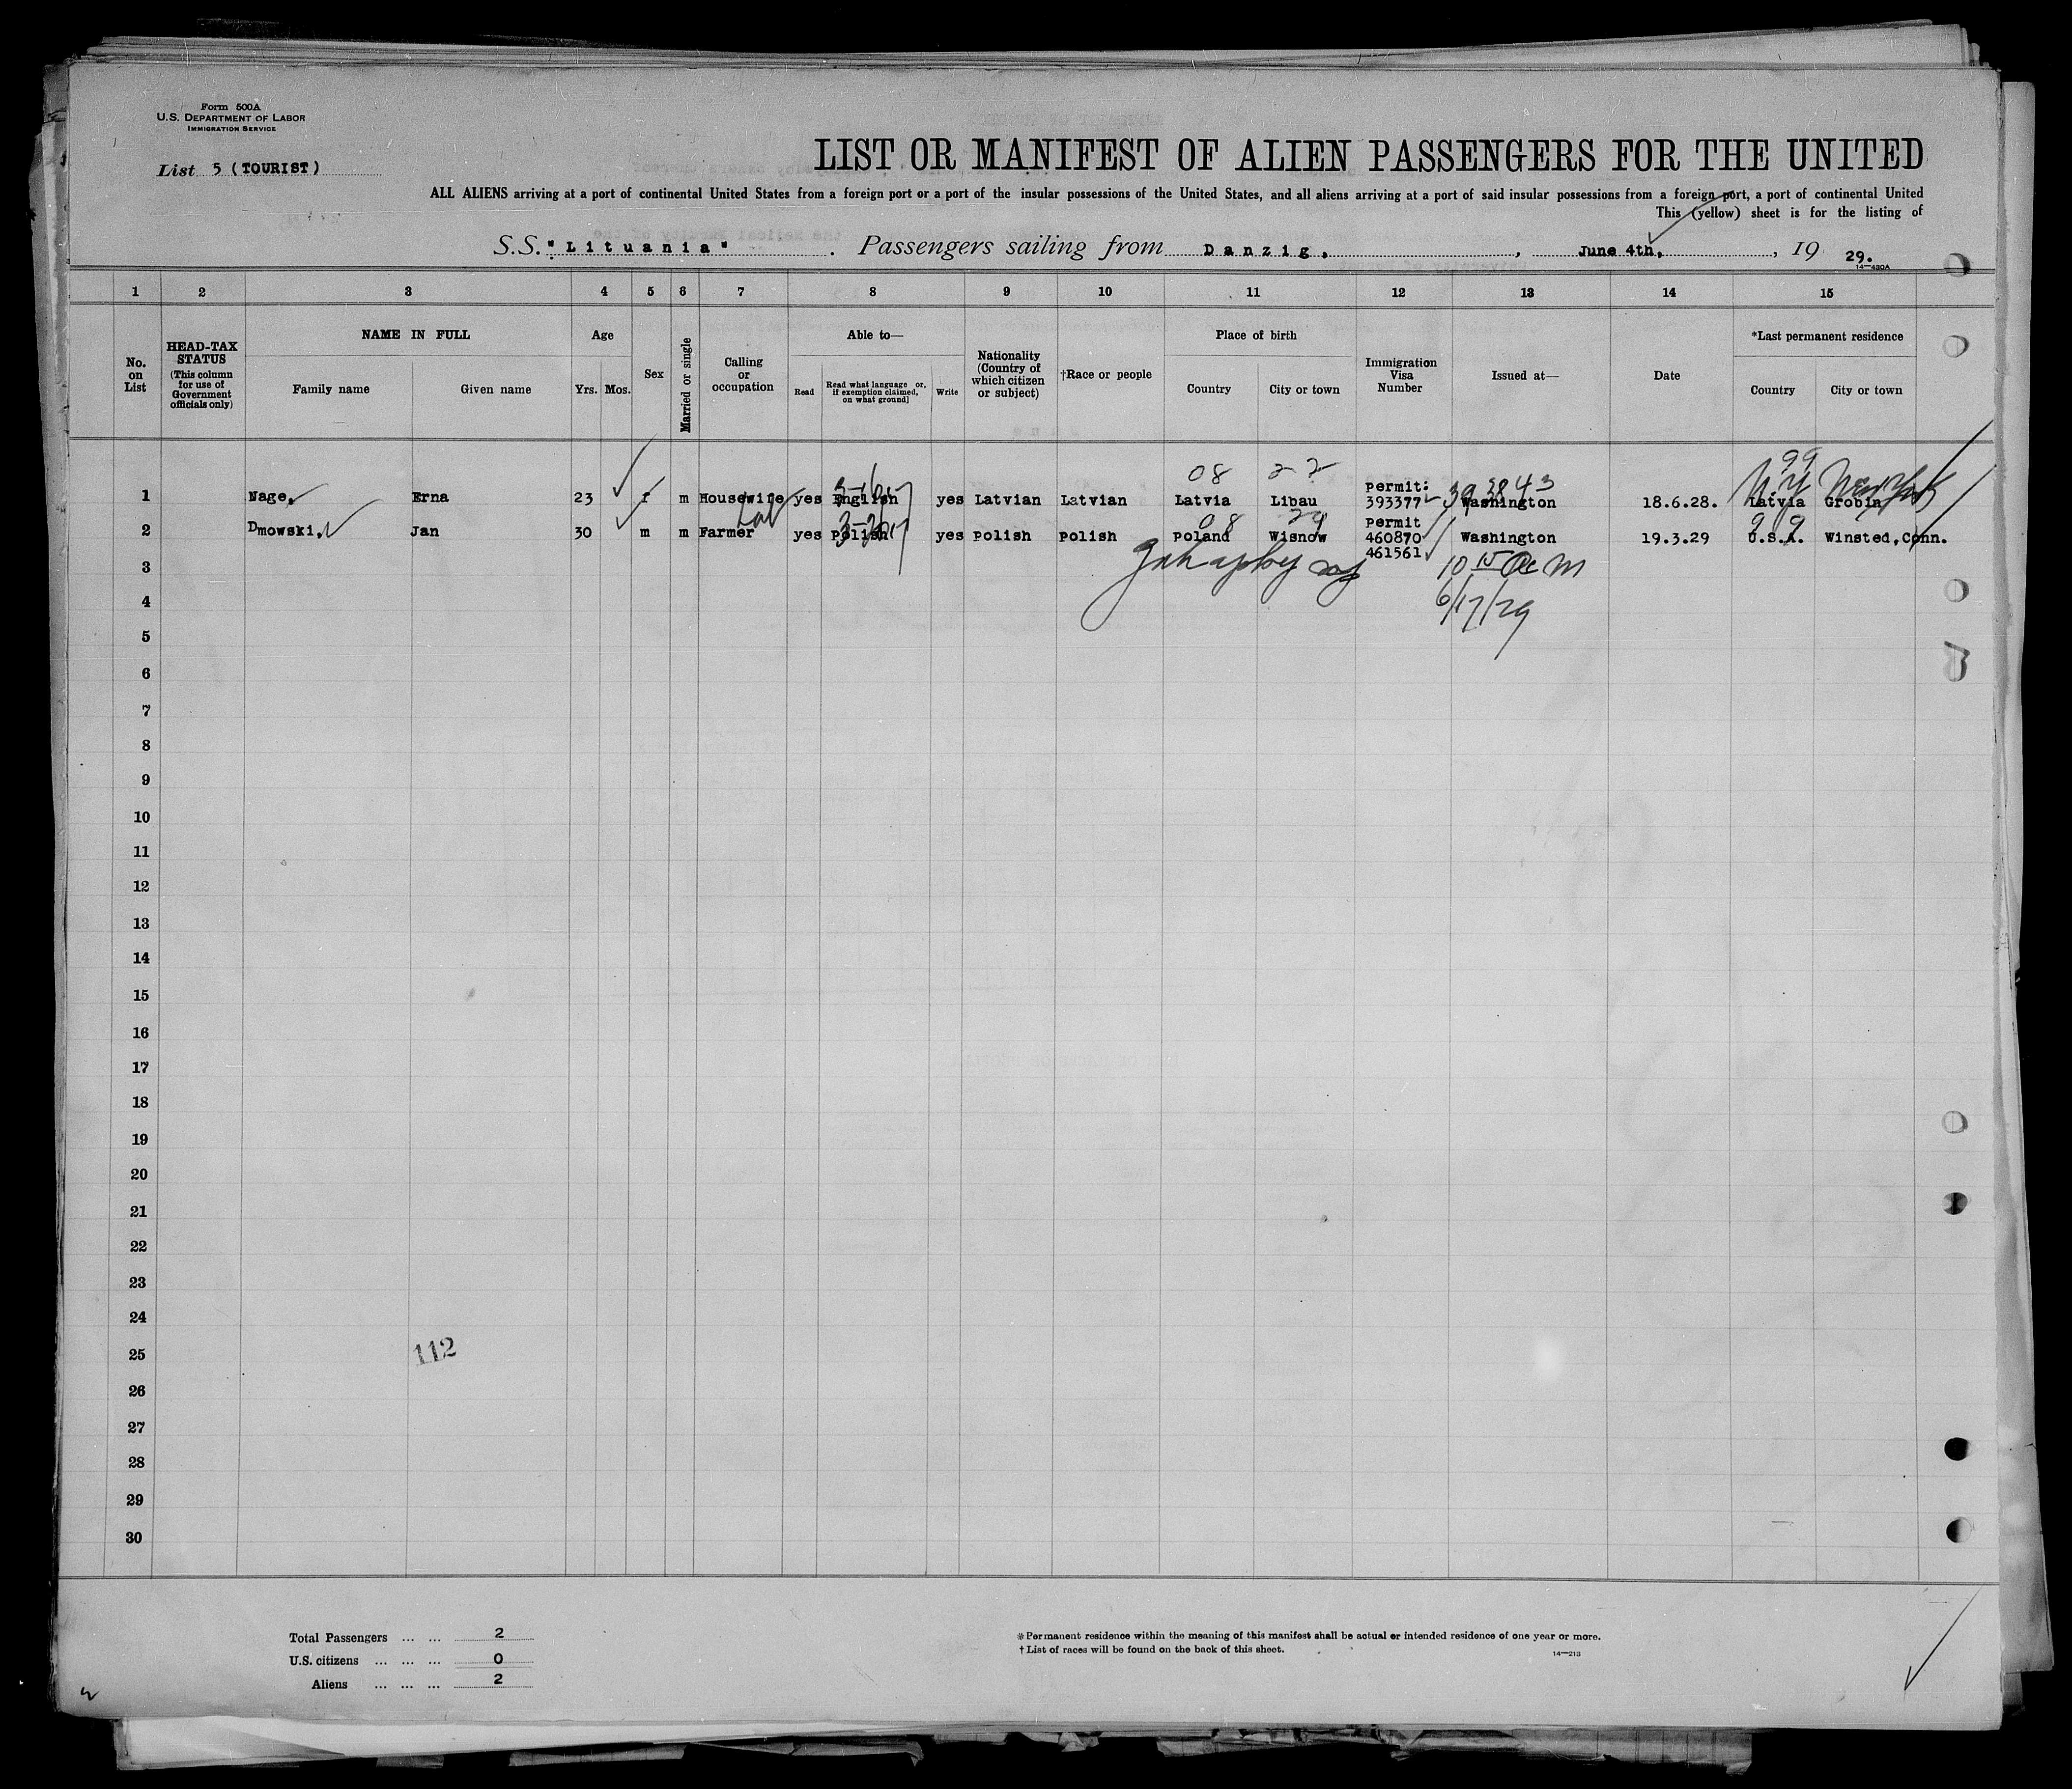 Form 500A
U.S. DEPARTMENT OF LABOR
IMMIGRATION SERVICE
List 5 (TOURIST)
LIST OR MANIFEST OF ALIEN PASSENGERS FOR THE UNITED
ALL ALIENS arriving at a port of continental United States from a foreign port or a port of the insular possessions of the United States, and all aliens arriving at a port of said insular possessions from a foreign port, a port of continental United
This (yellow) sheet is for the listing of
S.S. "Lituania" . Passengers sailing from Danzig, , June 4th, , 19 29.
14—430A
1 2 3 4 5 6 7 8 9 10 11 12 13 14 15
No. on List
HEAD-TAX STATUS (This column for use of Government officials only)
NAME IN FULL
Family name Given name
Age
Yrs. Mos.
Sex
Married or single
Calling or occupation
Able to—
Read Read what language or, if exemption claimed, on what ground] Write
Nationality (Country of which citizen or subject)
†Race or people
Place of birth
Country City or town
Immigration Visa Number
Issued at—
Date
*Last permanent residence
Country City or town
08 22 99
Permit: 393843 N.Y New York
1 Nage, Erna 23 f m Housewife yes English yes Latvian Latvian Latvia Libau 393377 Washington 18.6.28. Latvia Grobin
08 29 Permit 99
2 Dmowski, Jan 30 m m Farmer yes Polish yes Polish Polish Poland Wisnow 460870 Washington 19.3.29 U.S.A. Winsted, Conn.
461561
3 10 15 A M
4 6/17/29
5
6
7
8
9
10
11
12
13
14
15
16
17
18
19
20
21
22
23
24
25 112
26
27
28
29
30
Total Passengers ... ... 2
U.S. citizens ... ... ... 0
Aliens ... ... ... 2
*Permanent residence within the meaning of this manifest shall be actual or intended residence of one year or more.
†List of races will be found on the back of this sheet.
14—213